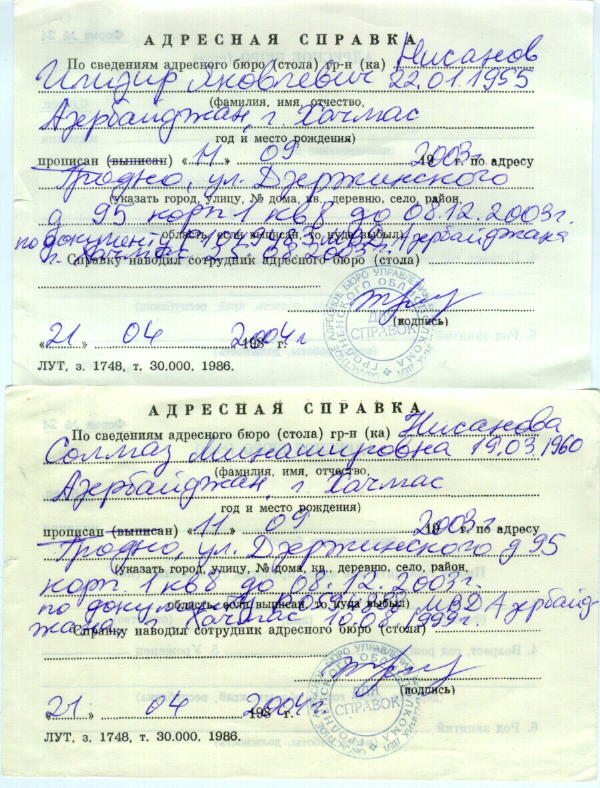 АДРЕСНАЯ СПРАВКА
По сведениям адресного бюро (стола) гр-н (ка) Нисанов
Яковлевич 22.01.1955
(фамилия, имя, отчество,
Азербайджан, г. Хачмас
год и место рождения)
прописан (выписан) «11» 09 2003 г. по адресу
Гродно, ул. Дзержинского
(указать город, улицу, № дома, кв., деревню, село, район,
д 95 корп. 1 кв. 8 до 08.12.2003г.
область, если выписан, то куда выбыл)
по документу Азербайджана
Справку наводил сотрудник адресного бюро (стола)
(подпись)
«21» 04 2004 г.
ЛУТ, з. 1748, т. 30.000, 1986.
АДРЕСНАЯ СПРАВКА
По сведениям адресного бюро (стола) гр-н (ка) Нисанова
Солмаз 19.03.1960
(фамилия, имя, отчество,
Азербайджан, г. Хачмас
год и место рождения)
прописан (выписан) «11» 09 2003 г. по адресу
Гродно, ул. Дзержинского д 95
(указать город, улицу, № дома, кв., деревню, село, район,
корп. 1 кв 8 до 08.12.2003г.
область, если выписан, то куда выбыл)
по документу МВД Азербайд
жана г. Хачмас 10.08.1999г.
Справку наводил сотрудник адресного бюро (стола)
(подпись)
«21» 04 2004 г.
ЛУТ, з. 1748, т. 30.000, 1986.